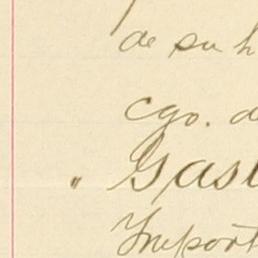 de su h
cgo. d
" Gast
Import